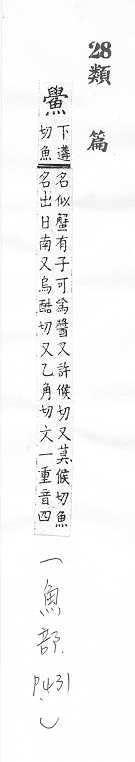 28類篇
鱟 下遘切魚名似蟹有子可為醬又許候切又莫候切魚名出日南又烏酷切又乙角切文一重音四
(魚部 P431)